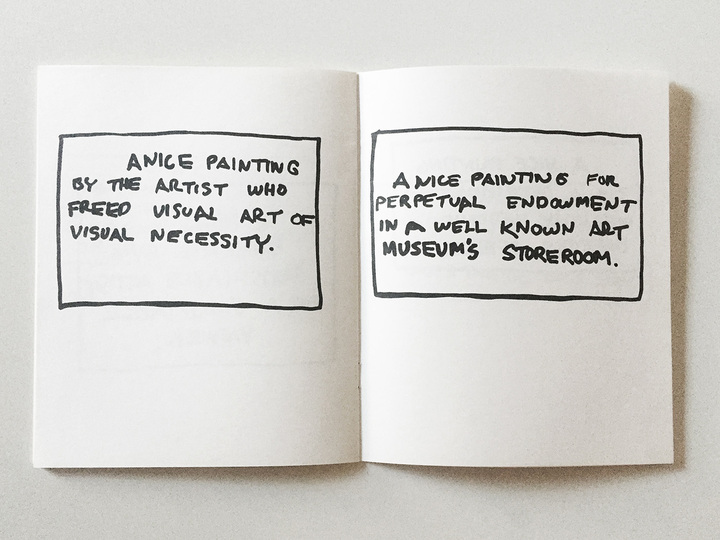 A NICE PAINTING
BY THE ARTIST WHO
FREED VISUAL ART OF
VISUAL NECESSITY.
A NICE PAINTING FOR
PERPETUAL ENDOWMENT
IN A WELL KNOWN ART
MUSEUM'S STOREROOM.